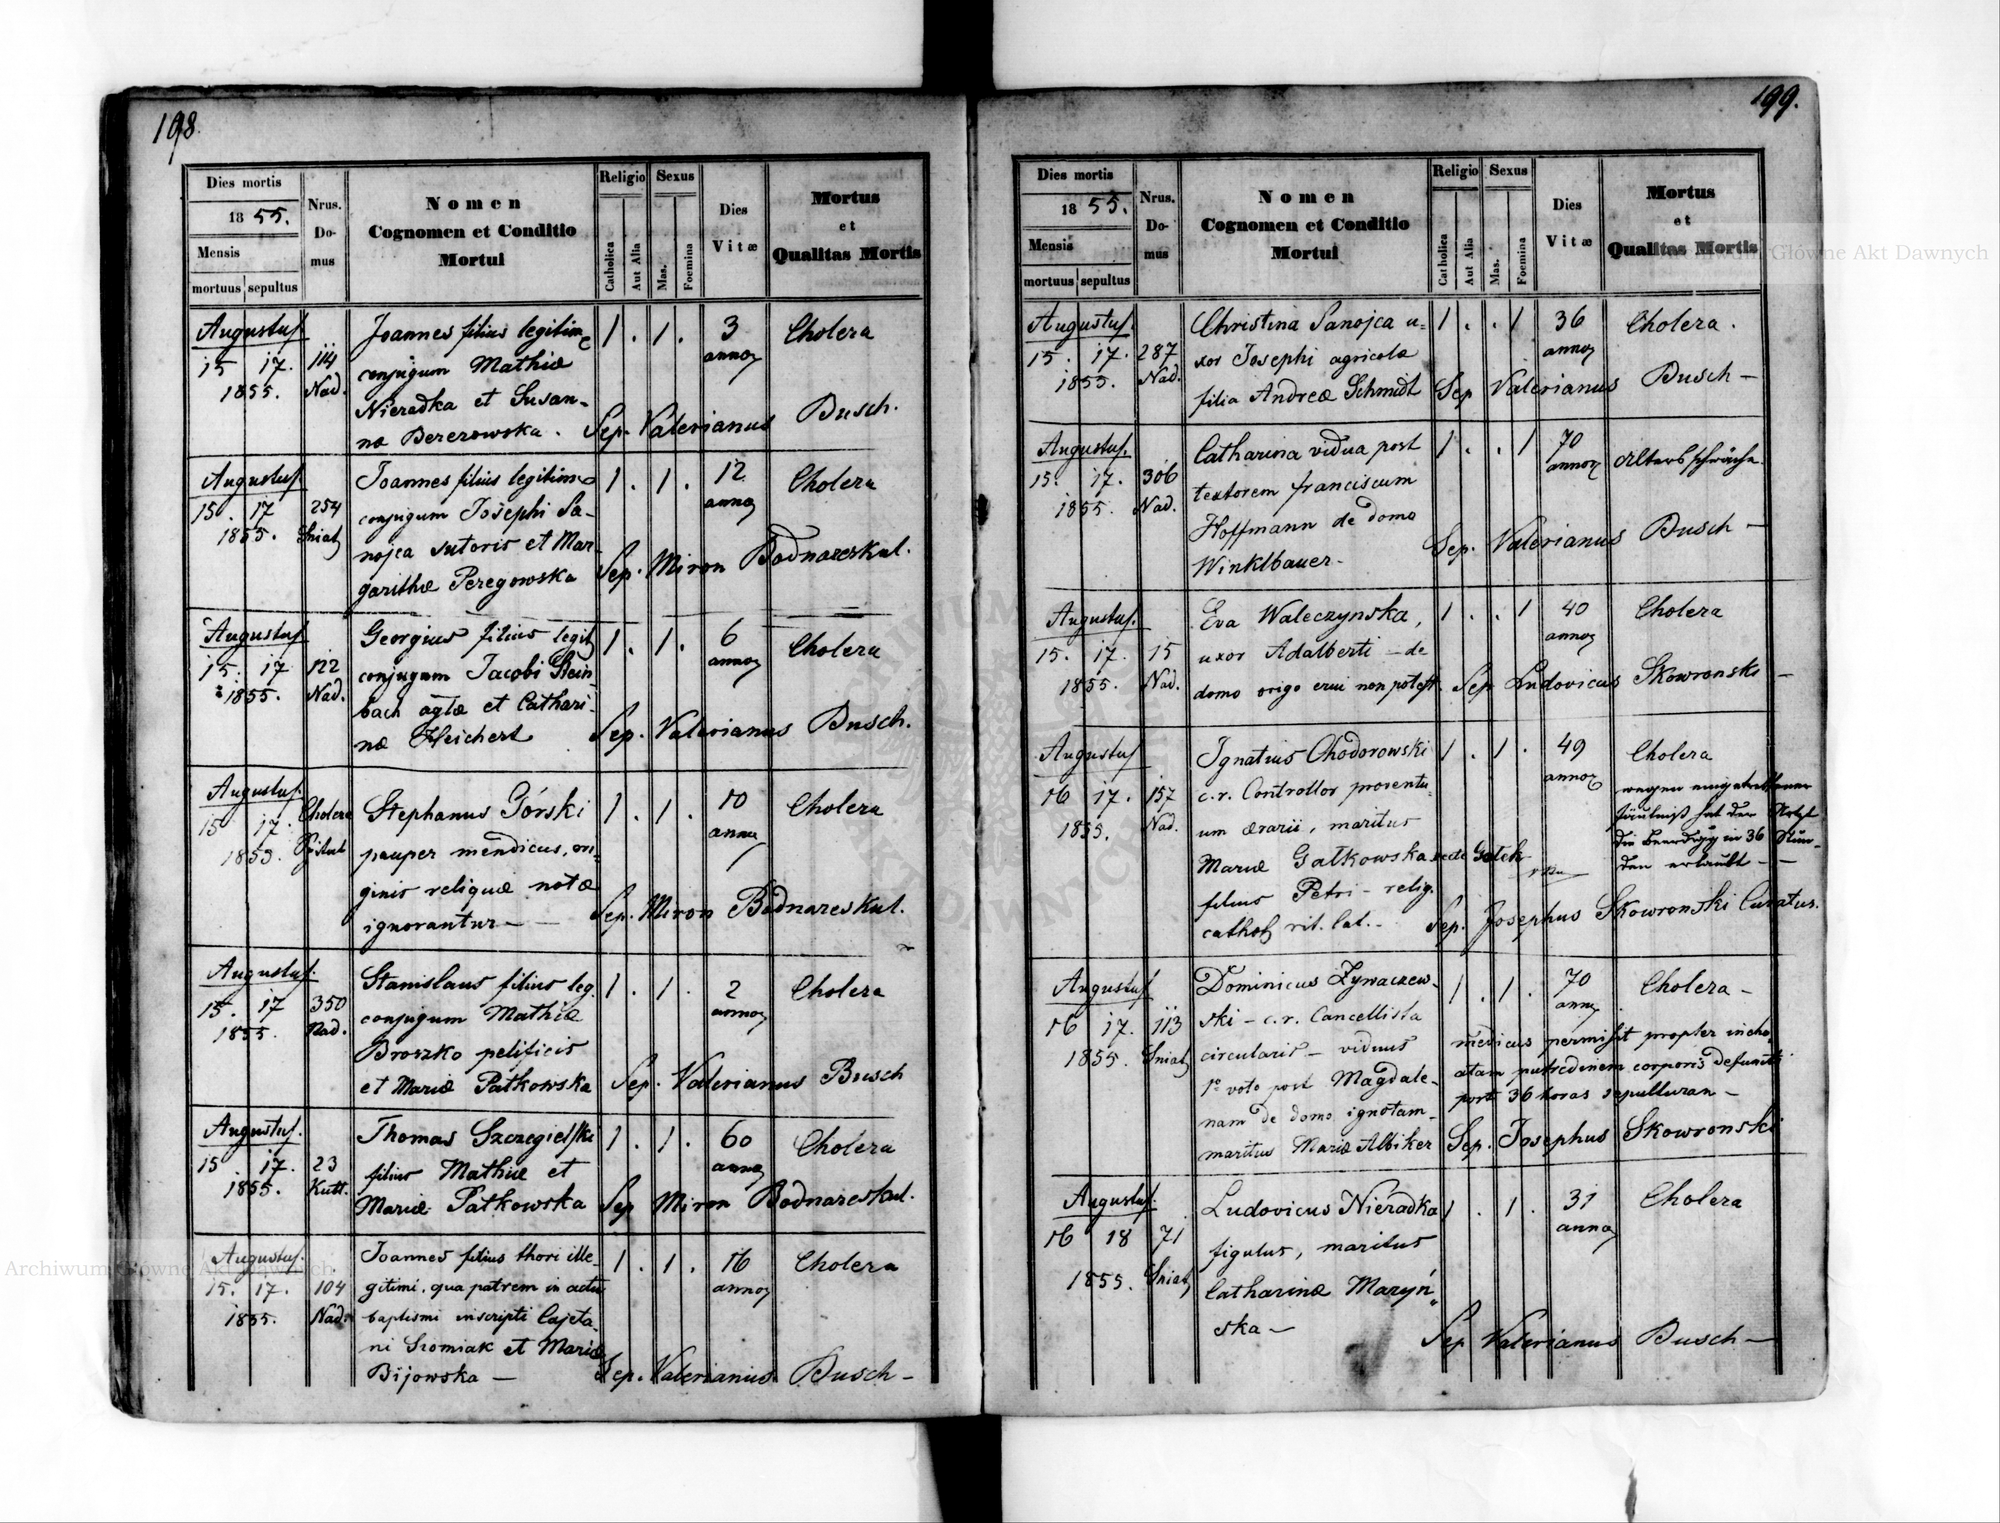 198.
Dies mortis
1855.
Mensis
mortuus sepultus
Nrus. Domus
Nomen
Cognomen et Conditio
Mortui
Religio
Catholica
Aut Alia
Sexus
Mas.
Foemina
Dies
Vitæ
Mortus
et
Qualitas Mortis
Augustus
15 17. 1855.
114 Nad.
Joannes filius legitim
conjugum Mathiæ
Nieradka et Susan-
na Berezowska.
1 . 1 .
3 annor
Cholera
Sep. Valerianus Busch.
Augustus
15. 17 1855.
254 Sniat
Joannes filius legitim
conjugum Josephi Sa-
nojca sutoris et Mar-
garithæ Peregowska
1 . 1 .
12 annor
Cholera
Sep. Miron Bodnareskul.
Augustus
15. 17 1855.
122 Nad.
Georgius filius legit
conjugum Jacobi Stein-
bach aglæ et Cathari-
næ Heichert
1 . 1 .
6 annor
Cholera
Sep. Valerianus Busch.
Augustus.
15 17. 1855.
Cholera Spitul
Stephanus Górski
pauper mendicus, ori-
ginis reliquæ notæ
ignorantur —
1 . 1 .
10
Cholera
Sep. Miron Bodnareskul.
Augustus.
15. 17 1855.
350 Nad.
Stanislaus filius leg.
conjugum Mathiæ
Broszko pelificis
et Mariæ Patkowska
1 . 1 .
2 annor
Cholera
Sep. Valerianus Busch
Augustus.
15 17. 1855.
23 Kutt.
Thomas Szczegielski
filius Mathiæ et
Mariæ Patkowska
1 . 1 .
60 annor
Cholera
Sep Miron Bodnareskul.
Augustus.
15. 17. 1855.
104 Nad.
Joannes filius thori ille-
gitimi, qua patrem in actu
baptismi inscripti Cajeta-
ni Siomiak et Mariæ
Bijowska —
1 . 1 .
16 annor
Cholera
Sep. Valerianus Busch —
199.
Dies mortis
1855.
Mensis
mortuus sepultus
Nrus. Domus
Nomen
Cognomen et Conditio
Mortui
Religio
Catholica
Aut Alia
Sexus
Mas.
Foemina
Dies
Vitæ
Mortus
et
Qualitas Mortis
Augustus.
15. 17. 1855.
287 Nad.
Christina Sanojca u-
xor Josephi agricolæ
filia Andreæ Schmidt
1 . . 1
36 annor
Cholera.
Sep Valerianus Busch —
Augustus.
15. 17. 1855.
306 Nad.
Catharina vidua post
textorem franciscum
Hoffmann de domo
Winklbauer.
1 . . 1
70 annor
Altersschwäche
Sep. Valerianus Busch —
Augustus.
15. 17. 1855.
15 Nad.
Eva Waleczynska,
uxor Adalberti — de
domo origo erui non potest.
1 . . 1
40 annor
Cholera
Sep Ludovicus Skowronski —
Augustus
16 17. 1855.
157 Nad.
Ignatius Chodorowski
c.r. Controllor proventu-
um ærarii, maritus
Mariæ Gatkowska recte Gatek
filius Petri — relig.
cathol rit. lat. —
1 . 1 .
49 annor
Cholera
wegen eingetroffener
Fäulniß hat der Arzt
die Beerdigg in 36 Stun-
den erlaubt —
Sep. Josephus Skowronski Curatus.
Augustus
16 17. 1855.
113 Sniat
Dominicus Zywaczew-
ski — c.r. Cancellista
circularis — viduus
1º voto post Magdale-
nam de domo ignotam —
maritus Mariæ Albiker
1 . 1 .
70
Cholera —
medicus permisit propter incho-
atam putredinem corporis defuncti
post 36 horas sepulturam —
Sep. Josephus Skowronski
Augustus.
16 18 1855.
71 Sniat
Ludovicus Nieradka
figulus, maritus
Catharinæ Maryń-
ska —
1 . 1 .
31 annor
Cholera
Sep Valerianus Busch —
Archiwum Główne Akt Dawnych
Główne Akt Dawnych